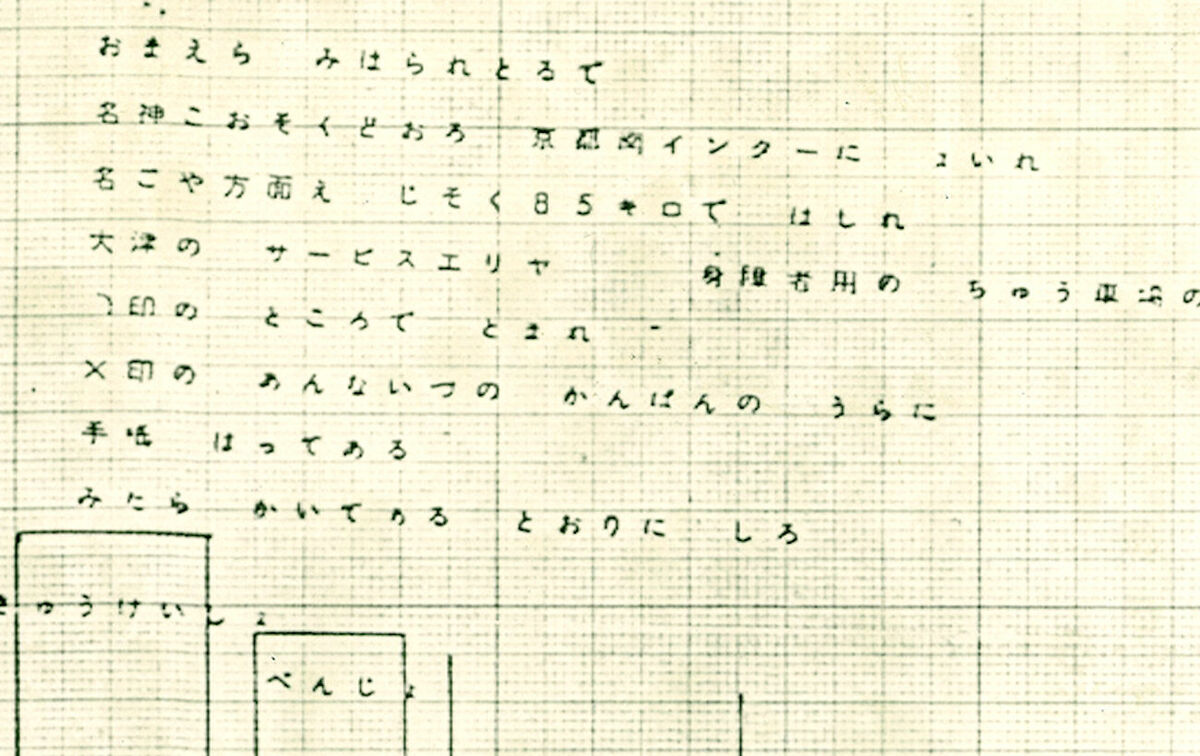 おまえら みはられとるで
名神こおそくどおろ 京都南インターに はいれ
名ごや方面え じそく85キロで はしれ
大津の サービスエリヤ 身障者用の ちゅう車場の
印の ところで とまれ
×印の あんないづの かんばんの うらに
手紙 はってある
みたら かいてある とおりに しろ
きゅうけいしょ
べんじょ